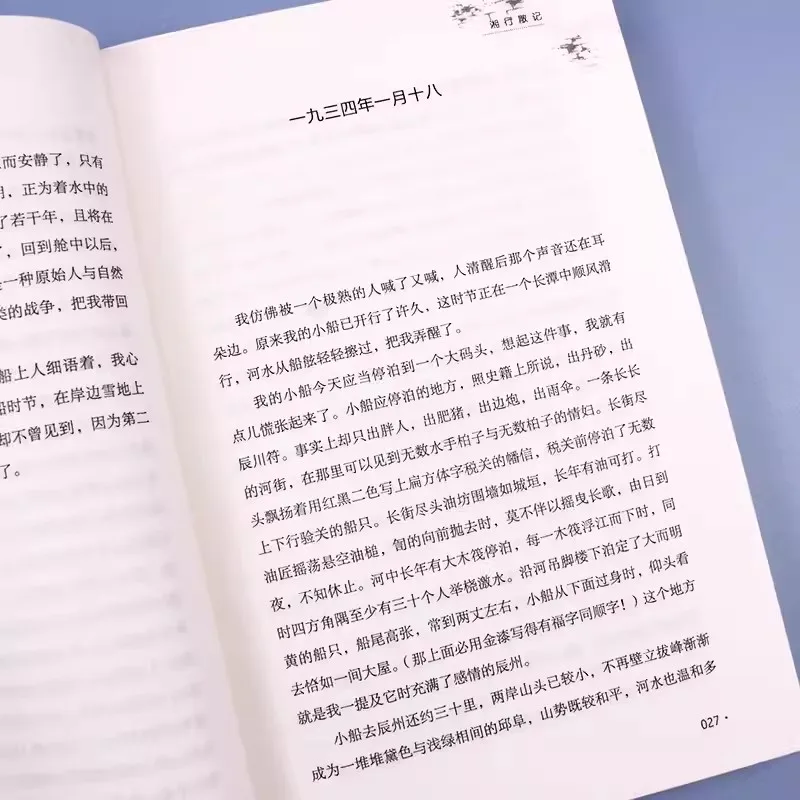 而安静了，只有
，正为着水中的
了若干年，且将在
，回到舱中以后，
一种原始人与自然
类的战争，把我带回
船上人细语着，我心
船时节，在岸边雪地上
却不曾见到，因为第二
了。
湘行散记
一九三四年一月十八
我仿佛被一个极熟的人喊了又喊，人清醒后那个声音还在耳
朵边。原来我的小船已开行了许久，这时节正在一个长潭中顺风滑
行，河水从船舷轻轻擦过，把我弄醒了。
我的小船今天应当停泊到一个大码头，想起这件事，我就有
点儿慌张起来了。小船应停泊的地方，照史籍上所说，出丹砂，出
辰川符。事实上却只出胖人，出肥猪，出边炮，出雨伞。一条长长
的河街，在那里可以见到无数水手柏子与无数柏子的情妇。长街尽
头飘扬着用红黑二色写上扁方体字税关的幡信，税关前停泊了无数
上下行验关的船只。长街尽头油坊围墙如城垣，长年有油可打。打
油匠摇荡悬空油槌，訇的向前抛去时，莫不伴以摇曳长歌，由日到
夜，不知休止。河中长年有大木筏停泊，每一木筏浮江而下时，同
时四方角隅至少有三十个人举桡激水。沿河吊脚楼下泊定了大而明
黄的船只，船尾高张，常到两丈左右，小船从下面过身时，仰头看
去恰如一间大屋。（那上面必用金漆写得有福字同顺字！）这个地方
就是我一提及它时充满了感情的辰州。
小船去辰州还约三十里，两岸山头已较小，不再壁立拔峰渐渐
成为一堆堆黛色与浅绿相间的邱阜，山势既较和平，河水也温和多
027